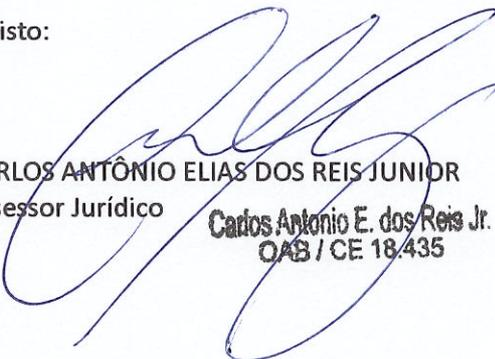 isto:
RLOS ANTÔNIO ELIAS DOS REIS JUNIOR
sessor Jurídico
Carlos Antonio E. dos Reis Jr.
OAB / CE 18.435